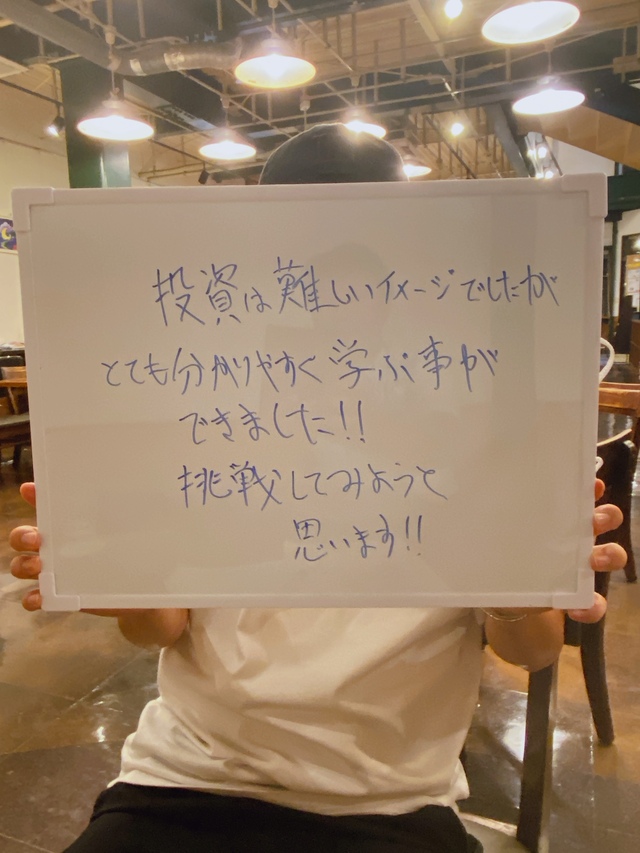 投資は難しいイメージでしたが
とても分かりやすく学ぶ事が
できました!!
挑戦してみようと
思います!!